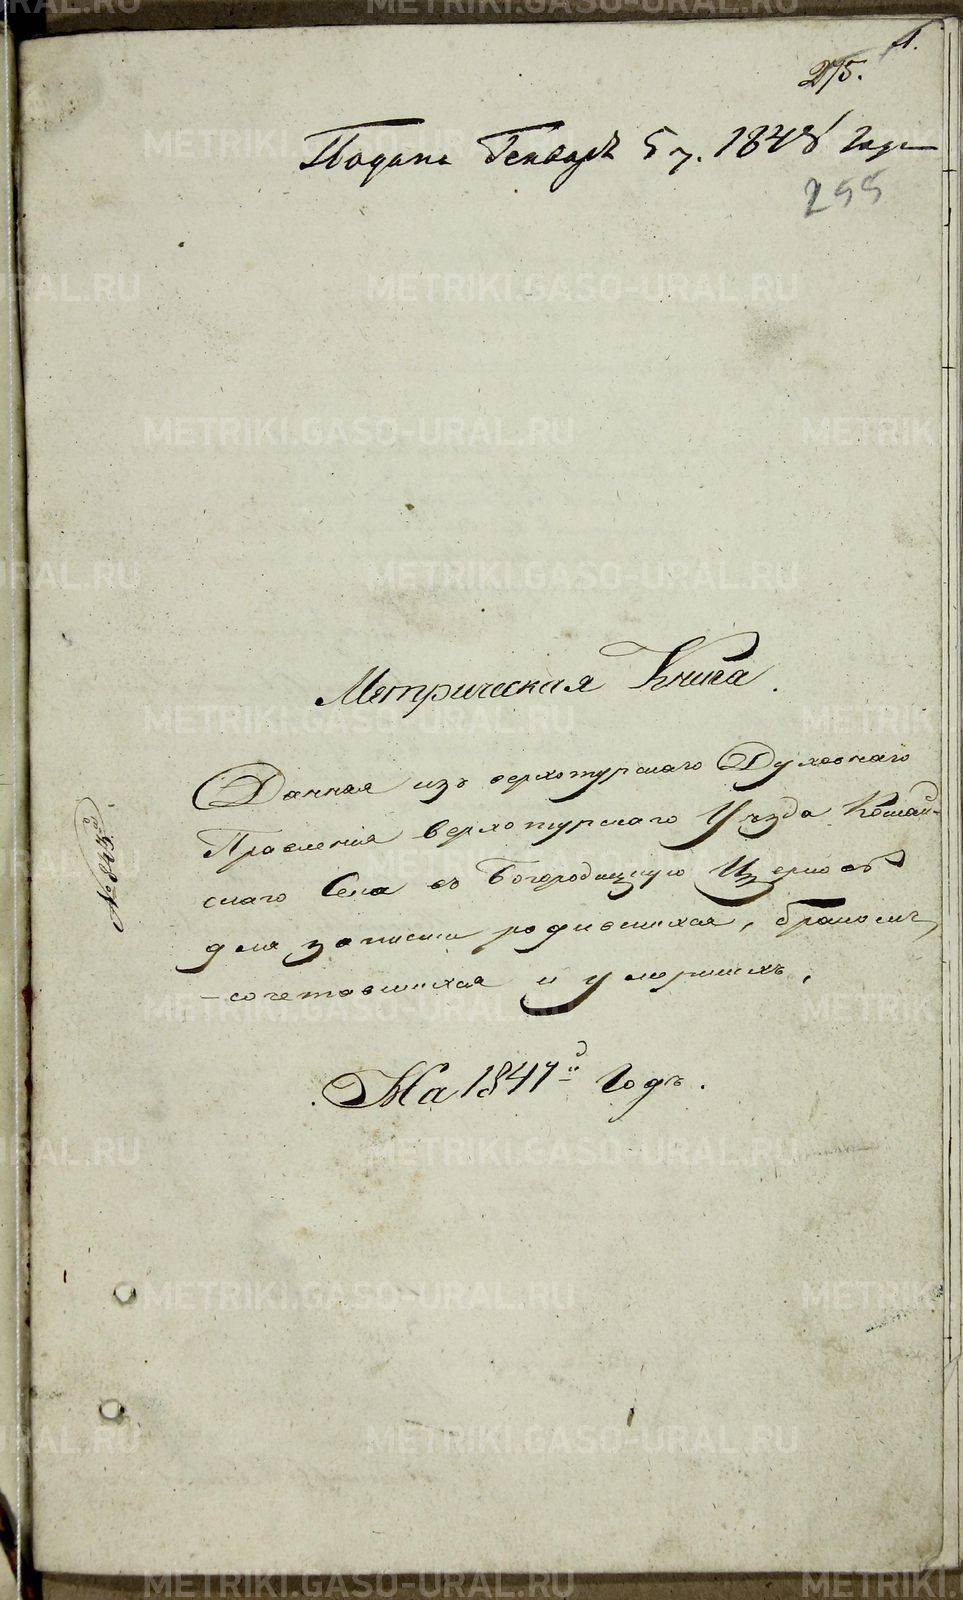 1.
275.
Подана Генваря 5 ч. 1848 года
255
Метрическая Книга.
Данная изъ верхотурскаго Духовнаго
Правления Верхотурскаго Уѣзда Кошай-
скаго Села въ Богородицкую Церковь
для записки родившихся, бракомъ
-сочетавшихся и умершихъ.
На 1847й Годъ.
METRIKI.GASO-URAL.RU